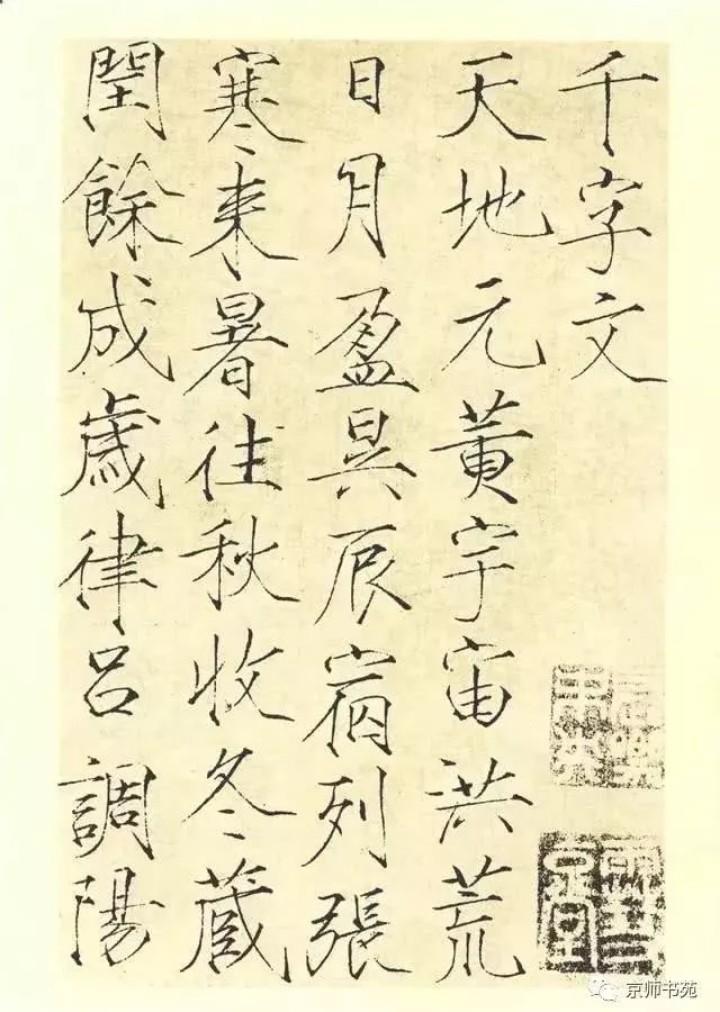 千字文
天地元黄宇宙洪荒
日月盈昃辰宿列張
寒来暑往秋收冬蔵
閏餘成歲律吕調陽
京师书苑